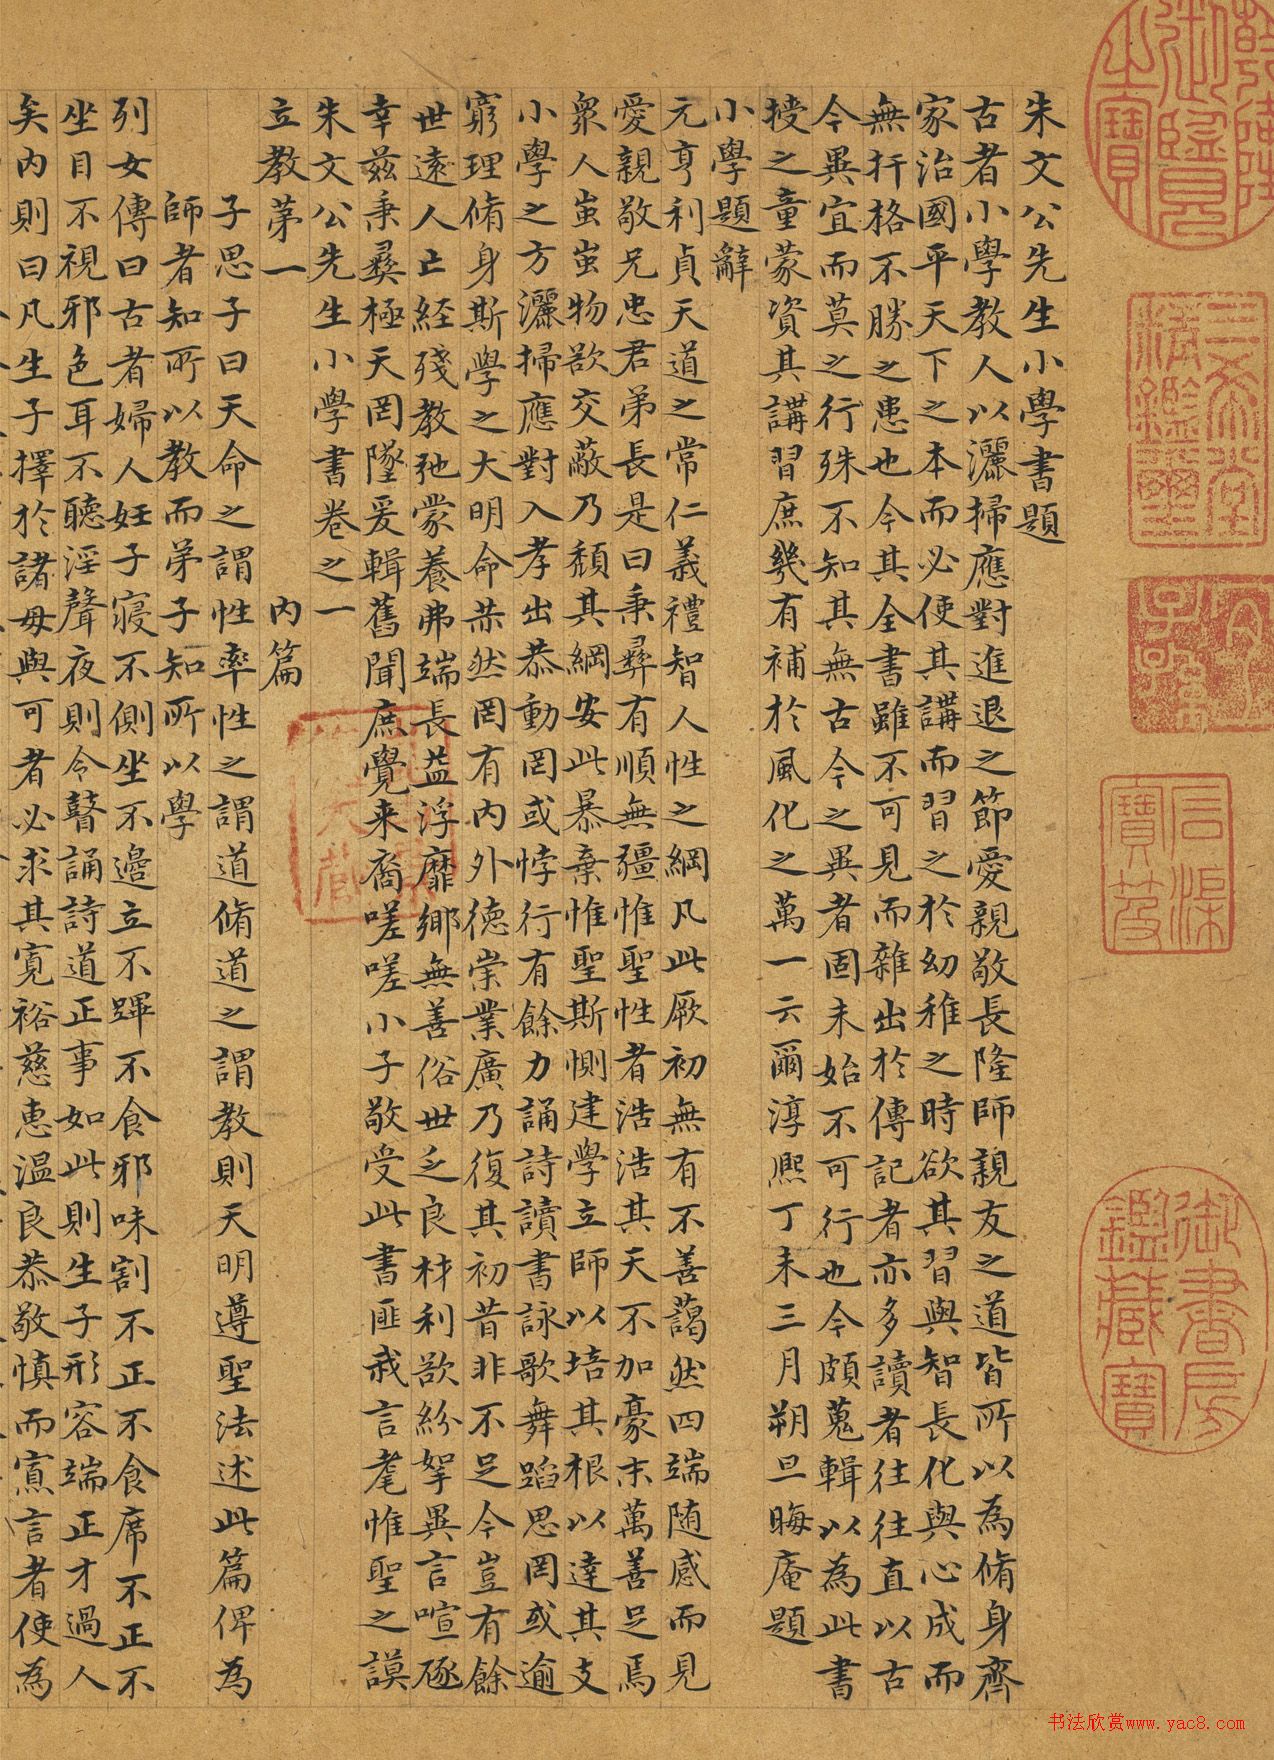 朱文公先生小學書題
古者小學教人以灑掃應對進退之節愛親敬長隆師親友之道皆所以為脩身齊
家治國平天下之本而必使其講而習之於幼稚之時欲其習與智長化與心成而
無扞格不勝之患也今其全書雖不可見而雜出於傳記者亦多讀者往往直以古
今異宜而莫之行殊不知其無古今之異者固未始不可行也今頗蒐輯以為此書
授之童蒙資其講習庶幾有補於風化之萬一云爾淳熙丁未三月朔旦晦庵題
小學題辭
元亨利貞天道之常仁義禮智人性之綱凡此厥初無有不善藹然四端随感而見
愛親敬兄忠君弟長是曰秉彝有順無彊惟聖性者浩浩其天不加毫末萬善足焉
衆人蚩蚩物欲交蔽乃頹其綱安此暴棄惟聖斯惻建學立師以培其根以達其支
小學之方灑掃應對入孝出恭動罔或悖行有餘力誦詩讀書詠歌舞蹈思罔或逾
窮理脩身斯學之大明命赫然罔有内外德崇業廣乃復其初昔非不足今豈有餘
世遠人亡經殘教弛蒙養弗端長益浮靡鄉無善俗世乏良材利欲紛挐異言喧豗
幸兹秉彝極天罔墜爰輯舊聞庶覺来裔嗟嗟小子敬受此書匪我言耄惟聖之謨
朱文公先生小學書卷之一
立教第一 内篇
子思子曰天命之謂性率性之謂道脩道之謂教則天明遵聖法述此篇俾為
師者知所以教而弟子知所以學
列女傳曰古者婦人妊子寢不側坐不邊立不蹕不食邪味割不正不食席不正不
坐目不視邪色耳不聽淫聲夜則令瞽誦詩道正事如此則生子形容端正才過人
矣内則曰凡生子擇於諸母與可者必求其寬裕慈惠温良恭敬慎而寡言者使為
乾隆御覽之寶
三希堂精鑑璽
宜子孫
石渠寶笈
御書房鑑藏寶
书法欣赏www.yac8.com